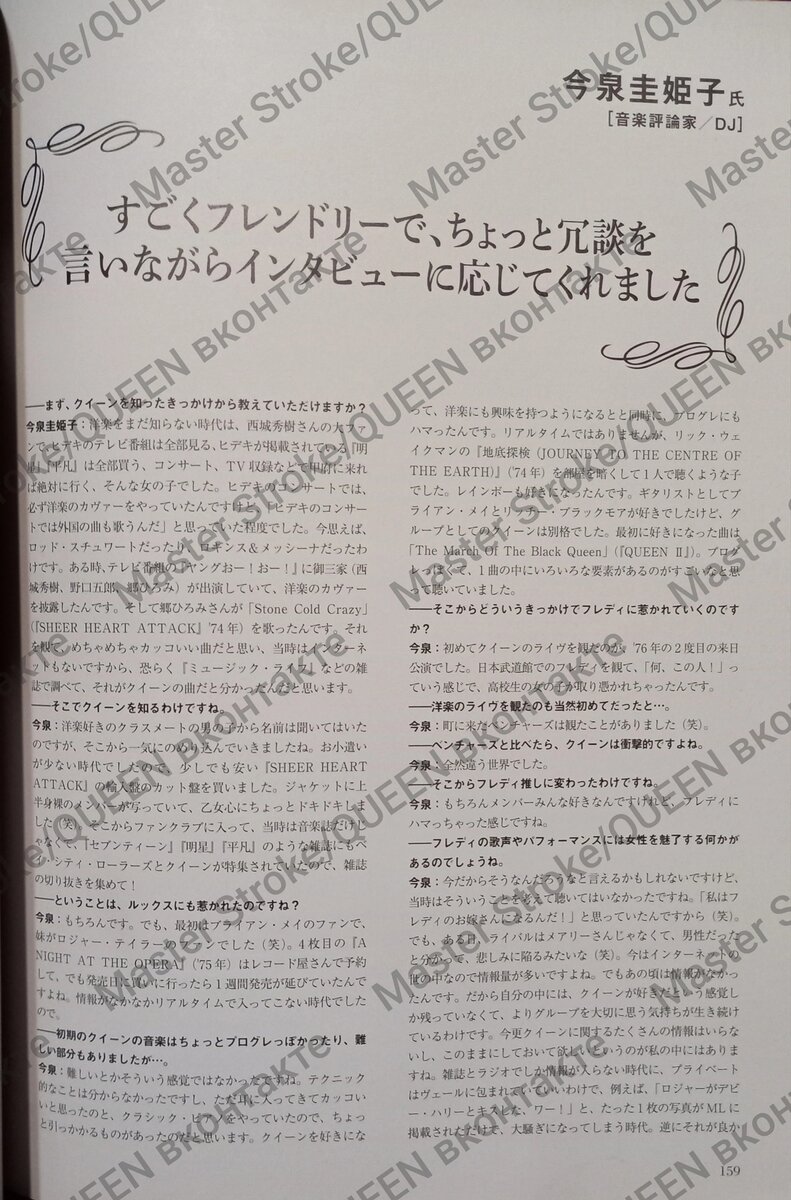 今泉圭姫子氏
[音楽評論家／DJ]
すごくフレンドリーで、ちょっと冗談を
言いながらインタビューに応じてくれました
──まず、クイーンを知ったきっかけから教えていただけますか？
今泉圭姫子：洋楽をまだ知らない時代は、西城秀樹さんの大ファ
ンで、ヒデキのテレビ番組は全部見る、ヒデキが掲載されている『明
星』『平凡』は全部買う、コンサート、TV収録などで甲府に来れ
ば絶対に行く、そんな女の子でした。ヒデキのコンサートでは、
必ず洋楽のカヴァーをやっていたんですけど、「ヒデキのコンサー
トでは外国の曲も歌うんだ」と思っていた程度でした。今思えば、
ロッド・スチュワートだったり、ロギンス＆メッシーナだったわ
けです。ある時、テレビ番組の『ヤングおー！おー！』に御三家（西
城秀樹、野口五郎、郷ひろみ）が出演していて、洋楽のカヴァー
を披露したんです。そして郷ひろみさんが「Stone Cold Crazy」
（『SHEER HEART ATTACK』'74年）を歌ったんです。それ
を観て、めちゃめちゃカッコいい曲だと思い、当時はインターネ
ットもないですから、恐らく『ミュージック・ライフ』などの雑
誌で調べて、それがクイーンの曲だと分かったんだと思います。
──そこでクイーンを知るわけですね。
今泉：洋楽好きのクラスメートの男の子から名前は聞いてはいた
のですが、そこから一気にのめり込んでいきましたね。お小遣い
が少ない時代でしたので、少しでも安い『SHEER HEART
ATTACK』の輸入盤のカット盤を買いました。ジャケットに上
半身裸のメンバーが写っていて、乙女心にちょっとドキドキしま
した（笑）。そこからファンクラブに入って、当時は音楽誌だけじ
ゃなくて、『セブンティーン』『明星』『平凡』のような雑誌にもベ
イ・シティ・ローラーズとクイーンが特集されていたので、雑誌
の切り抜きを集めて！
──ということは、ルックスにも惹かれたのですね？
今泉：もちろんです。でも、最初はブライアン・メイのファンで、
妹がロジャー・テイラーのファンでした（笑）。4枚目の『A
NIGHT AT THE OPERA』（'75年）はレコード屋さんで予約
して、でも発売日に買いに行ったら1週間発売が延びていたんで
すよね。情報がなかなかリアルタイムで入ってこない時代でした
ので。
──初期のクイーンの音楽はちょっとプログレっぽかったり、難し
い部分もありましたが…。
今泉：難しいとかそういう感覚ではなかったですね。テクニック
的なことは分からなかったですし、ただ耳に入ってきてカッコい
いと思ったのと、クラシック・ピアノをやっていたので、ちょっ
と引っかかるものがあったのだと思います。クイーンを好きにな
って、洋楽にも興味を持つようになると同時に、プログレにも
ハマったんです。リアルタイムではありませんが、リック・ウェ
イクマンの『地底探検（JOURNEY TO THE CENTRE OF
THE EARTH）』（'74年）を部屋を暗くして1人で聴くような子
でした。レインボーも好きになったんです。ギタリストとしてブ
ライアン・メイとリッチー・ブラックモアが好きでしたけど、グ
ループとしてのクイーンは別格でした。最初に好きになった曲は
「The March Of The Black Queen」（『QUEEN Ⅱ』）。プログ
レっぽくて、1曲の中にいろいろな要素があるのがすごいなと思
って聴いていました。
──そこからどういうきっかけでフレディに惹かれていくのです
か？
今泉：初めてクイーンのライヴを観たのが、'76年の2度目の来日
公演でした。日本武道館でのフレディを観て、「何、この人！」っ
ていう感じで、高校生の女の子が取り憑かれちゃったんです。
──洋楽のライヴを観たのも当然初めてだったと…。
今泉：町に来たベンチャーズは観たことがありました（笑）。
──ベンチャーズと比べたら、クイーンは衝撃的ですよね。
今泉：全然違う世界でした。
──そこからフレディ推しに変わったわけですね。
今泉：もちろんメンバーみんな好きなんですけれど、フレディに
ハマっちゃった感じですね。
──フレディの歌声やパフォーマンスには女性を魅了する何かが
あるのでしょうね。
今泉：今だからそうなんだろうなと言えるかもしれないですけど、
当時はそういうことを考えて聴いてはいなかったですね。「私はフ
レディのお嫁さんになるんだ！」と思っていたんですから（笑）。
でも、ある日、ライバルはメアリーさんじゃなくて、男性だった
と分かって、悲しみに陥るみたいな（笑）。今はインターネットの
世の中なので情報量が多いですよね。でもあの頃は情報がなかっ
たんです。だから自分の中には、クイーンが好きだという感覚し
か残っていなくて、よりグループを大切に思う気持ちが生き続け
ているわけです。今更クイーンに関するたくさんの情報はいらな
いし、このままにしておいて欲しいというのが私の中にはありま
すね。雑誌とラジオでしか情報が入らない時代に、プライベート
はヴェールに包まれていていいわけで、例えば、「ロジャーがデビ
ー・ハリーとキスした、ワー！」と、たった1枚の写真がMLに
掲載されただけで、大騒ぎになってしまう時代。逆にそれが良か
159
Master Stroke/QUEEN ВКОНТАКТЕ